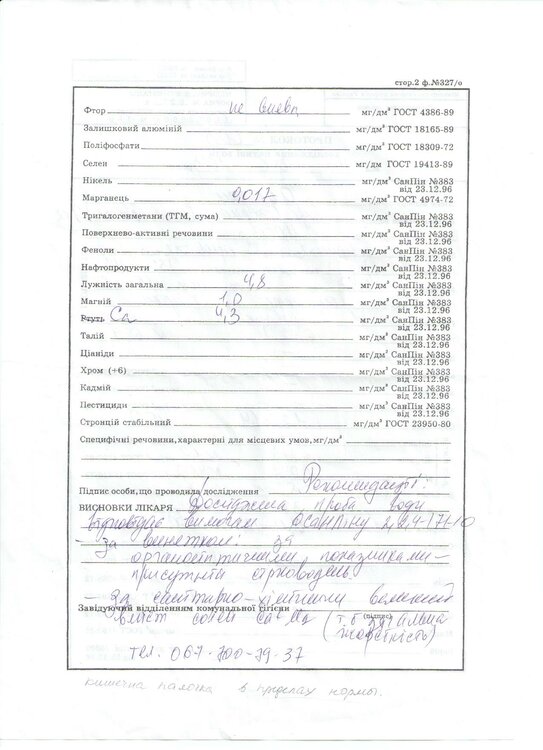 стор.2 ф.№327/о
Фтор не виявл мг/дм³ ГОСТ 4386-89
Залишковий алюміній мг/дм³ ГОСТ 18165-89
Поліфосфати мг/дм³ ГОСТ 18309-72
Селен мг/дм ГОСТ 19413-89
Нікель мг/дм³ СанПін №383
від 23.12.96
Марганець 0,017 мг/дм³ ГОСТ 4974-72
Тригалогенметани (ТГМ, сума) мг/дм³ СанПін №383
від 23.12.96
Поверхнево-активні речовини мг/дм³ СанПін №383
від 23.12.96
Феноли мг/дм³ СанПін №383
від 23.12.96
Нафтопродукти мг/дм³ СанПін №383
від 23.12.96
Лужність загальна 4,8 мг/дм³ СанПін №383
від 23.12.96
Магній 1,0 мг/дм³ СанПін №383
від 23.12.96
Ртуть Ca 4,3 мг/дм³ СанПін №383
від 23.12.96
Талій мг/дм³ СанПін №383
від 23.12.96
Ціаніди мг/дм³ СанПін №383
від 23.12.96
Хром (+6) мг/дм³ СанПін №383
від 23.12.96
Кадмій мг/дм³ СанПін №383
від 23.12.96
Пестициди мг/дм³ СанПін №383
від 23.12.96
Стронцій стабільний мг/дм³ ГОСТ 23950-80
Специфічні речовини, характерні для місцевих умов, мг/дм³
Рекомендації:
Підпис особи, що проводила дослідження
ВИСНОВКИ ЛІКАРЯ Досліджена проба води
відповідає вимогам ДСанПіну 2.2.4-171-10
- за винятком: за
органолептичними показниками -
присутність сірководень.
- За санітарно-хімічними великий
Завідуючий відділенням комунальної гігієни (підпис)
вміст солей Ca Mg (т.б. загальна
жорсткість)
тел. 067-700-79-37
кишечна палочка в пределах нормы.